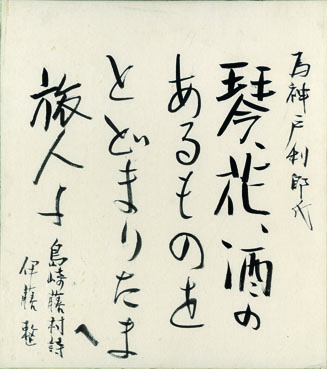 為神戸利郎氏
琴、花、酒の
あるものを
とどまりたまへ
旅人よ
島崎藤村詩
伊藤整